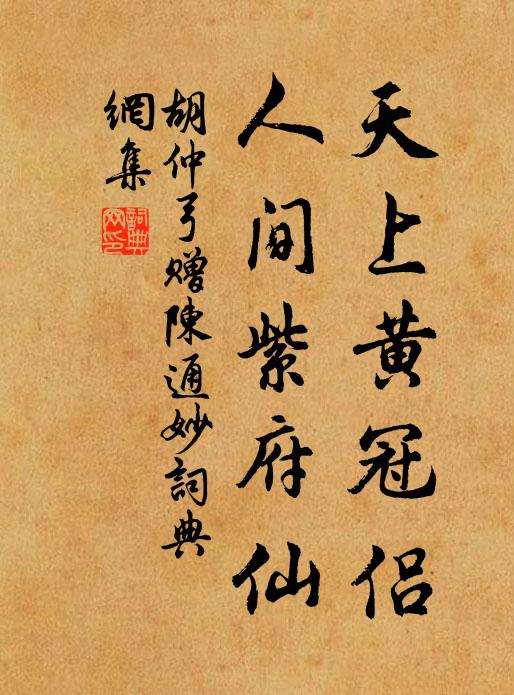 天上黄冠侣
人间紫府仙
胡仲弓赠陳通妙詞典
網集
詞典
网印